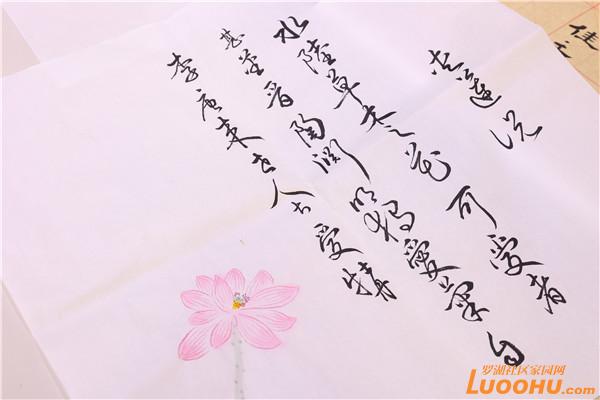 爱莲说
水陸草木之花可爱者
甚蕃晋陶渊明独愛菊自
李唐来世人甚爱牡
罗湖社区家园网
LUOOHU.com